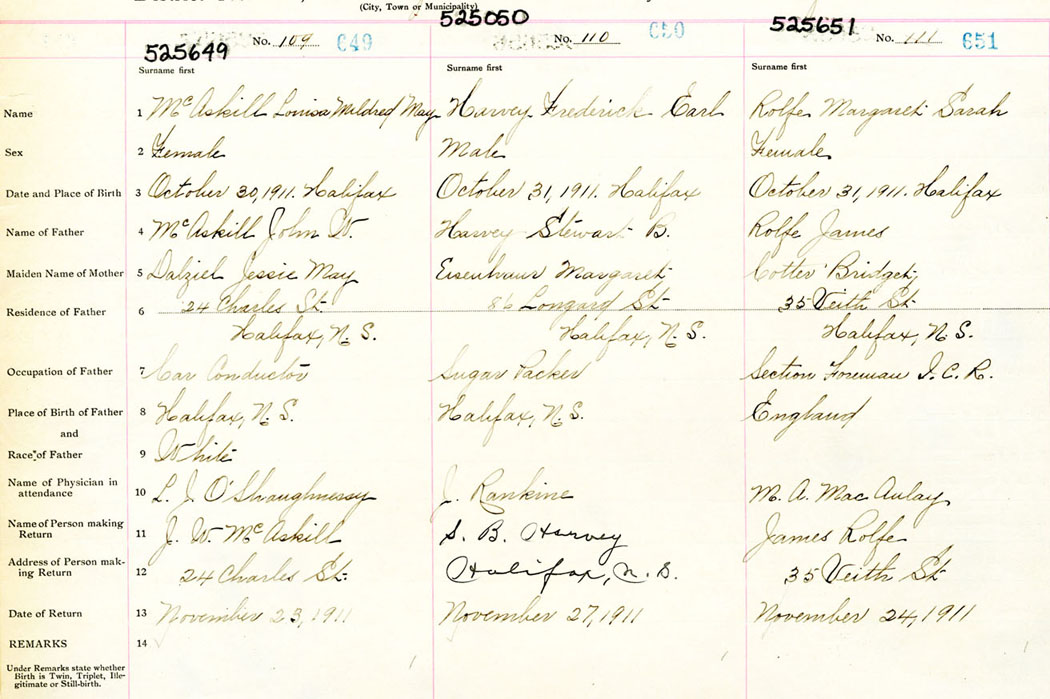 (City, Town or Municipality)
525649 No. 109 649
525050 No. 110 650
525651 No. 111 651
Surname first Surname first Surname first
Name 1 McAskill Louisa Mildred May Harvey Frederick Earl Rolfe Margaret Sarah
Sex 2 Female Male Female
Date and Place of Birth 3 October 30, 1911. Halifax October 31, 1911. Halifax October 31, 1911. Halifax
Name of Father 4 McAskill John W. Harvey Stewart B. Rolfe James
Maiden Name of Mother 5 Dalziel Jessie May Eisenhaur Margaret Cotter Bridget
Residence of Father 6 24 Charles St. 86 Longard St. 35 Veith St.
Halifax, N.S. Halifax, N.S. Halifax, N.S.
Occupation of Father 7 Car Conductor Sugar Packer Section Foreman I.C.R.
Place of Birth of Father 8 Halifax, N.S. Halifax, N.S. England
and
Race of Father 9 White
Name of Physician in
attendance 10 L. J. O'Shaughnessy J. Rankine M. A. MacAulay
Name of Person making
Return 11 J. W. McAskill S. B. Harvey James Rolfe
Address of Person mak-
ing Return 12 24 Charles St. Halifax, N.S. 35 Veith St.
Date of Return 13 November 23, 1911 November 27, 1911 November 24, 1911
REMARKS 14
Under Remarks state whether
Birth is Twin, Triplet, Ille-
gitimate or Still-birth.